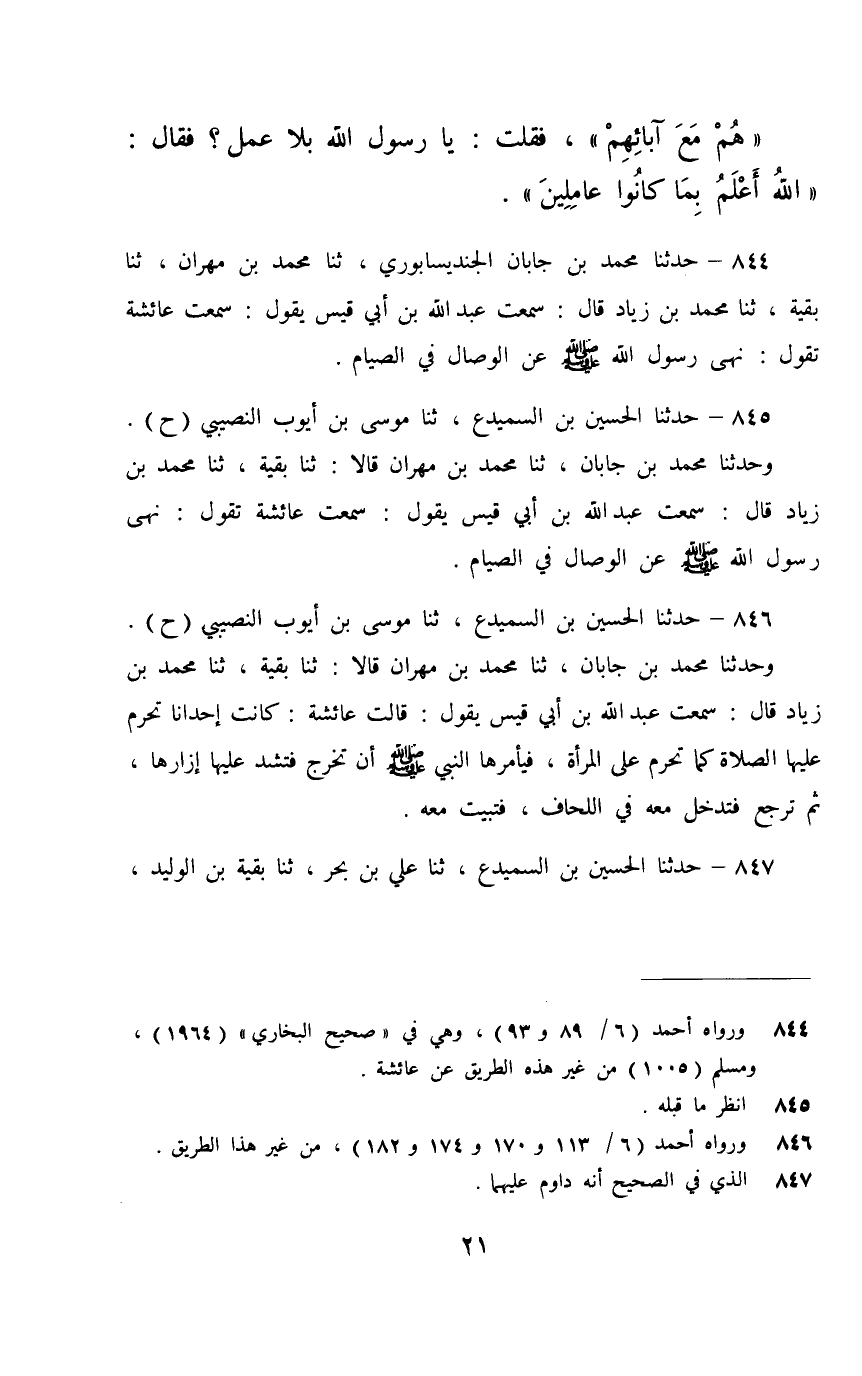 « هُمْ مَعَ آبائِهِمْ » ، فقلت : يا رسول الله بلا عمل ؟ فقال :
« اللهُ أَعْلَمُ بِمَا كانُوا عامِلِينَ » .
٨٤٤ – حدثنا محمد بن جابان الجنديسابوري ، ثنا محمد بن مهران ، ثنا
بقية ، ثنا محمد بن زياد قال : سمعت عبد الله بن أبي قيس يقول : سمعت عائشة
تقول : نهى رسول الله ﷺ عن الوصال في الصيام .
٨٤٥ – حدثنا الحسين بن السميدع ، ثنا موسى بن أيوب النصيبي ( ح ) .
وحدثنا محمد بن جابان ، ثنا محمد بن مهران قالا : ثنا بقية ، ثنا محمد بن
زياد قال : سمعت عبد الله بن أبي قيس يقول : سمعت عائشة تقول : نهى
رسول الله ﷺ عن الوصال في الصيام .
٨٤٦ – حدثنا الحسين بن السميدع ، ثنا موسى بن أيوب النصيبي ( ح ) .
وحدثنا محمد بن جابان ، ثنا محمد بن مهران قالا : ثنا بقية ، ثنا محمد بن
زياد قال : سمعت عبد الله بن أبي قيس يقول : قالت عائشة : كانت إحدانا تحرم
عليها الصلاة كما تحرم على المرأة ، فيأمرها النبي ﷺ أن تخرج فتشد عليها إزارها ،
ثم ترجع فتدخل معه في اللحاف ، فتبيت معه .
٨٤٧ – حدثنا الحسين بن السميدع ، ثنا علي بن بحر ، ثنا بقية بن الوليد ،
٨٤٤ ورواه أحمد ( ٦ / ٨٩ و ٩٣ ) ، وهي في « صحيح البخاري » ( ١٩٦٤ ) ،
ومسلم ( ١٠٠٥ ) من غير هذه الطريق عن عائشة .
٨٤٥ انظر ما قبله .
٨٤٦ ورواه أحمد ( ٦ / ١١٣ و ١٧٠ و ١٧٤ و ١٨٢ ) ، من غير هذا الطريق .
٨٤٧ الذي في الصحيح أنه داوم عليهما .
٢١